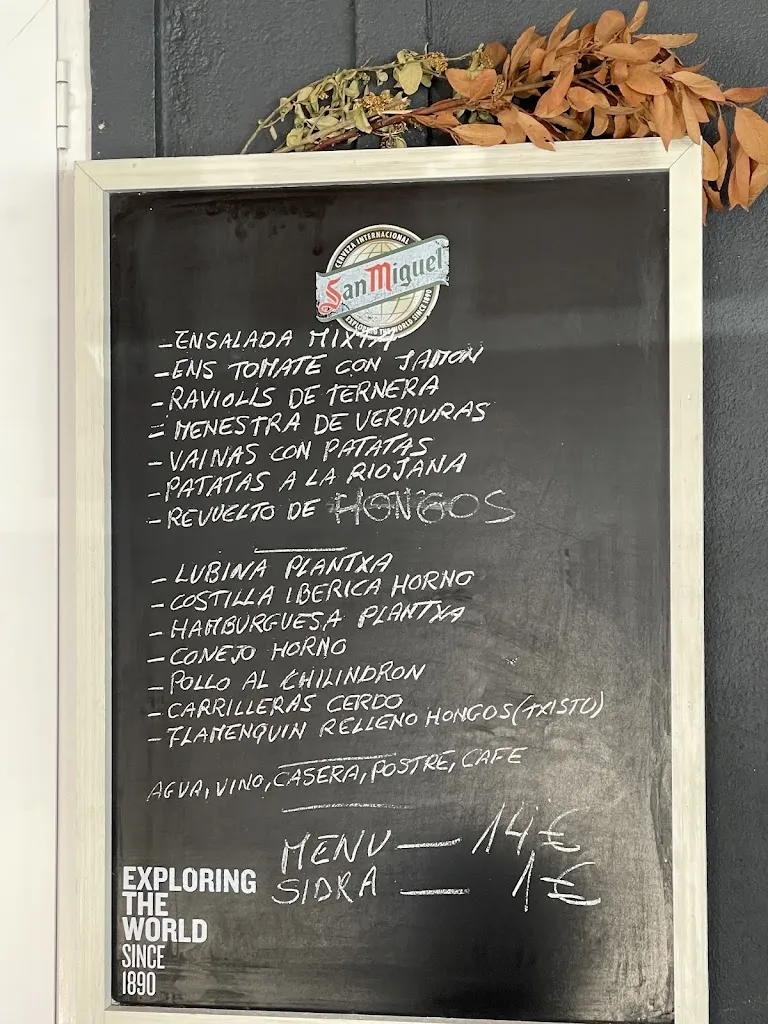 CERVEZA INTERNACIONAL
San Miguel
EXPLORING THE WORLD SINCE 1890
-ENSALADA MIXTA
-ENS TOMATE CON JAMON
-RAVIOLIS DE TERNERA
-MENESTRA DE VERDURAS
-VAINAS CON PATATAS
-PATATAS A LA RIOJANA
-REVUELTO DE HONGOS
-LUBINA PLANTXA
-COSTILLA IBERICA HORNO
-HAMBURGUESA PLANTXA
-CONEJO HORNO
-POLLO AL CHILINDRON
-CARRILLERAS CERDO
-FLAMENQUIN RELLENO HONGOS(TXISTU)
AGUA, VINO, CASERA, POSTRE, CAFE
MENU — 14€
SIDRA — 1€
EXPLORING
THE
WORLD
SINCE
1890